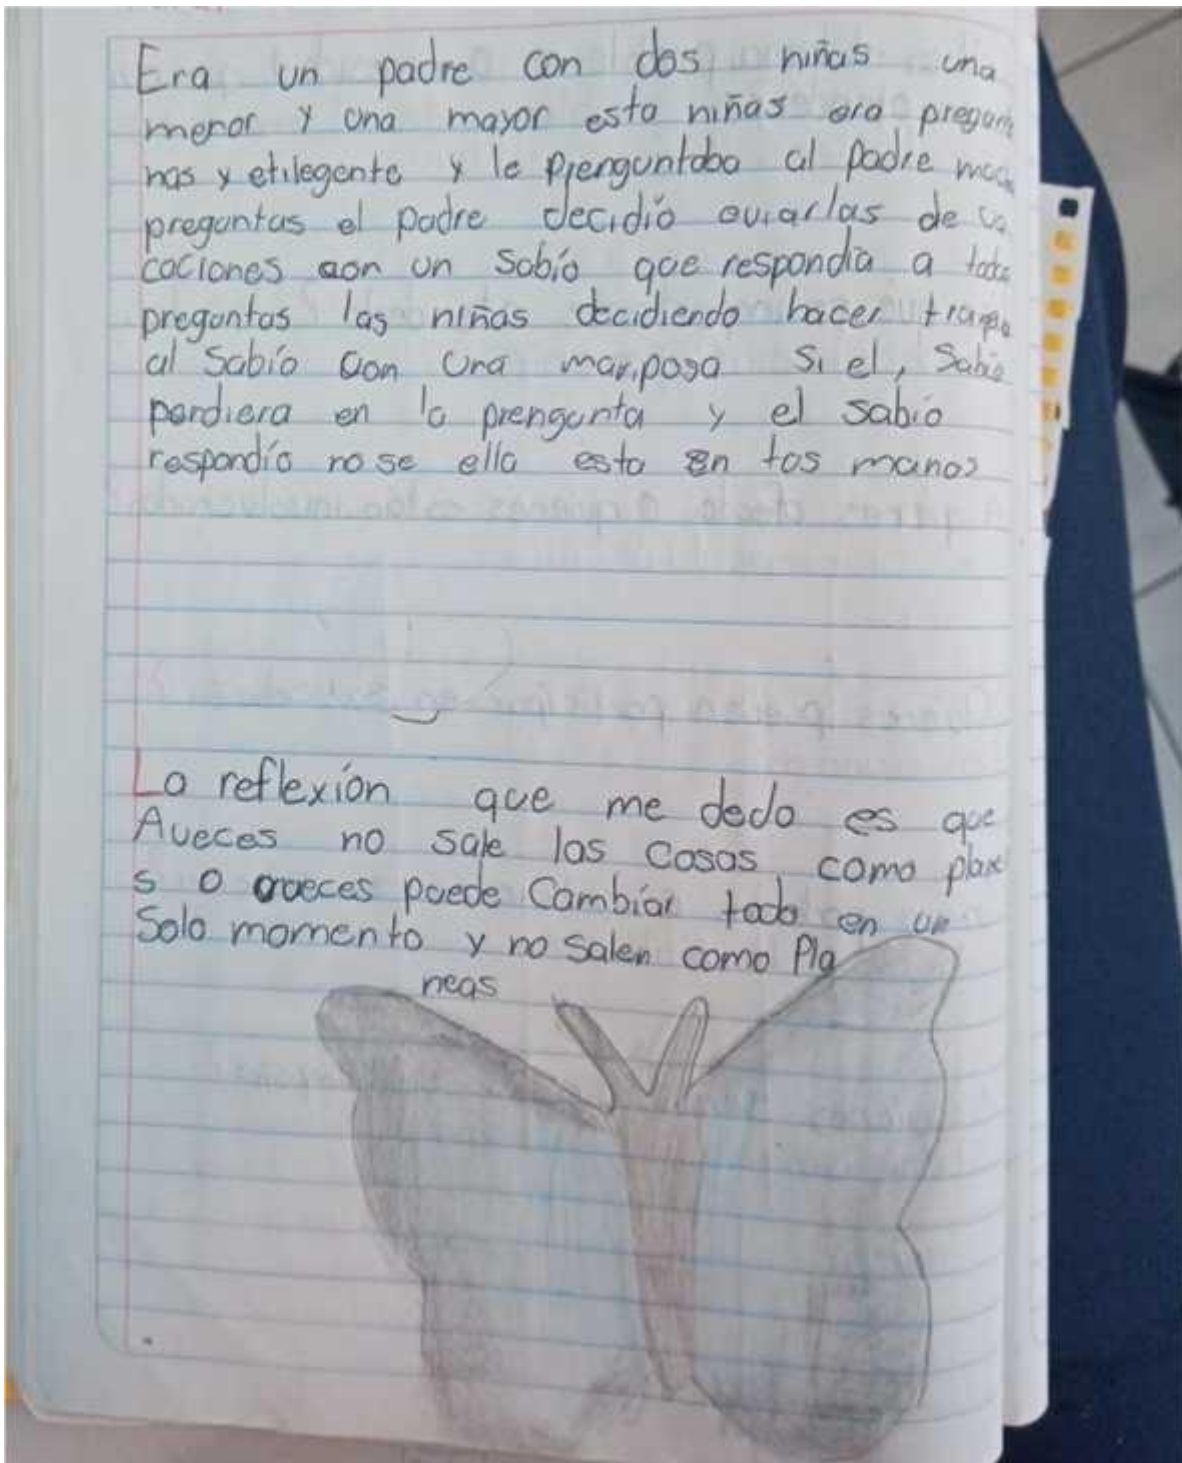 Era un padre con dos niñas una
menor y una mayor esta niñas era pregun
nas y etilegente y le prenguntaba al padre
preguntas el padre decidió aviarlas de va
caciones con un Sabío que respondía a todas
preguntas las niñas decidiendo hacer trampa
al Sabío con una mariposa si el, Sabío
perdiera en la prengunta y el sabío
respondío no se ella esta en tos manos
La reflexíon que me deda es que
Aveces no sale las cosas como plane
s o aveces puede Cambíar todo en un
Solo momento y no salen como Pla
neas